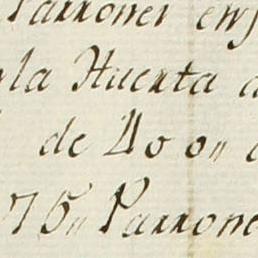 Parrones en
la Huerta a
de 40 on
75n Parrone